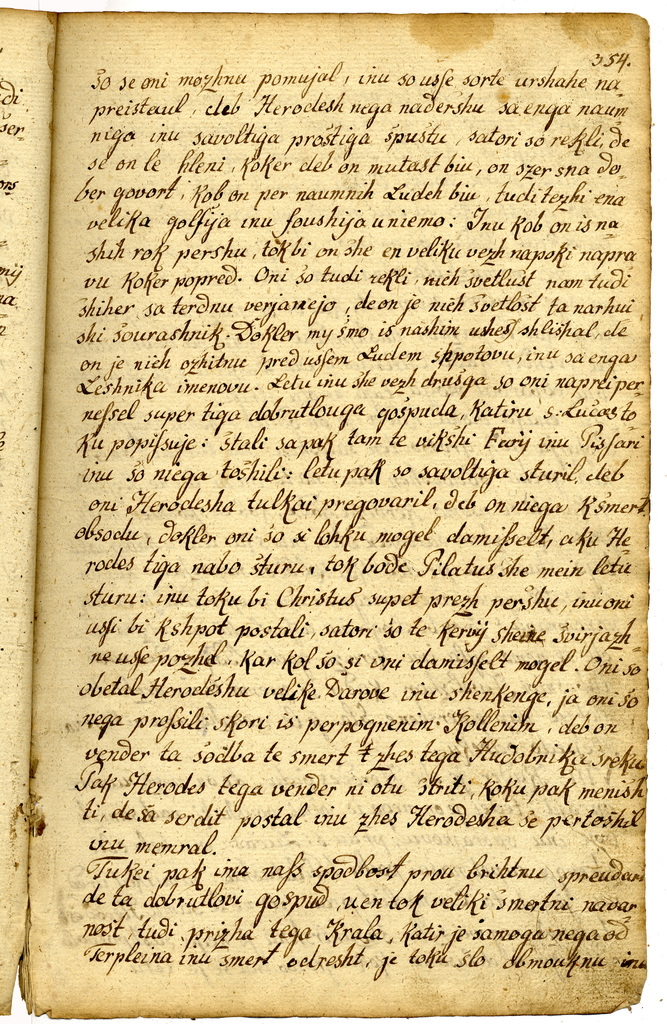 354.
so se oni mozhnu pomujal, inu so usse sorte urshahe na=
preistaul, deb Herodesh nega nadershu sa enga naum=
niga inu savoltiga prostiga spustu, satori so rekli, de
se on le hleni, koker deb on mutast biu, on szer sna do=
ber govort, kob on per naumnih Ludeh biu, tudi tezhi ena
velika golfija inu foushija uniemo: Inu kob on is na=
shih rok pershu, tok bi on she en veliku vezh napoki napra
vu koker popred. Oni so tudi rekli, nich svetlust nam tudi
shiher sa terdnu verjamejo, de on je nich svetlost ta narhui
shi sourashnik. Dokler my smo is nashim ushes shlishal, de
on je nich ozhitnu pred ussem Ludem shpotovu, inu sa enga
Leshnika imenovu. Letu inu she vezh drusga so oni naprei per
nessel super tiga dobrutlouga gospuda, katiru s. Lucas to
ku popissuje: stali sa pak tam te vikshi Farji inu Pissari
inu so niega toshili: letu pak so savoltiga sturil, deb
oni Herodesha tulkai pregovaril, deb on niega k smert
obsodu, dokler oni so si lohku mogel damisselt, aku He
rodes tiga nabo sturu, tok bode Pilatus she mein letu
sturu: inu toku bi Christus supet prezh pershu, inu oni
ussi bi k shpot postali, satori so te kervij sheine svirjazh=
ne usse pozhel, kar kol so si oni damisselt mogel. Oni so
obetal Herodeshu velike Darove inu shenkenge, ja oni so
nega prossili skori is perpognenim Kollenim, deb on
vender ta sodba te smert zhes tega Hudobnika sreku
Pak Herodes tega vender ni otu striti, koku pak menish
ti, de sa serdit postal inu zhes Herodesha se pertoshil
inu memral.
Tukei pak ima nass spodbost prou brihtnu spreudari
de ta dobrutlovi gospud, u en tok veliki smertni navar
nost, tudi prizha tega Krala, katir je samoga nega od
Terpleina inu smert odresht, je toku slo obmouknu inu